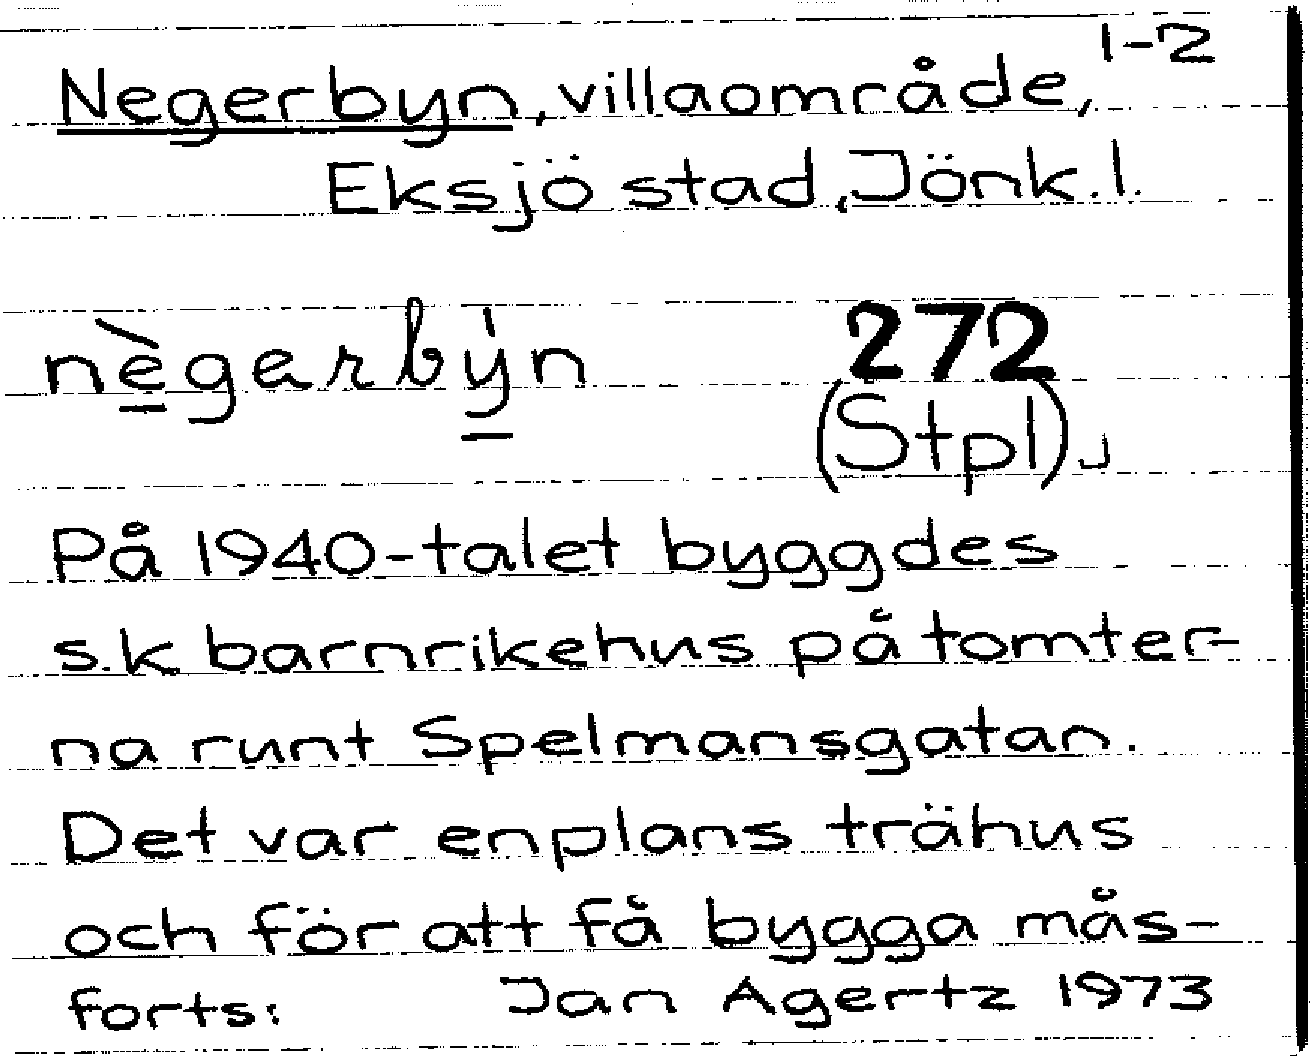 1-2
Negerbyn, villaområde,
Eksjö stad, Jönk.l.
nègerbýn 272
(Stpl).
På 1940-talet byggdes
s.k barnrikehus på tomter-
na runt Spelmansgatan.
Det var enplans trähus
och för att få bygga mås-
forts: Jan Agertz 1973